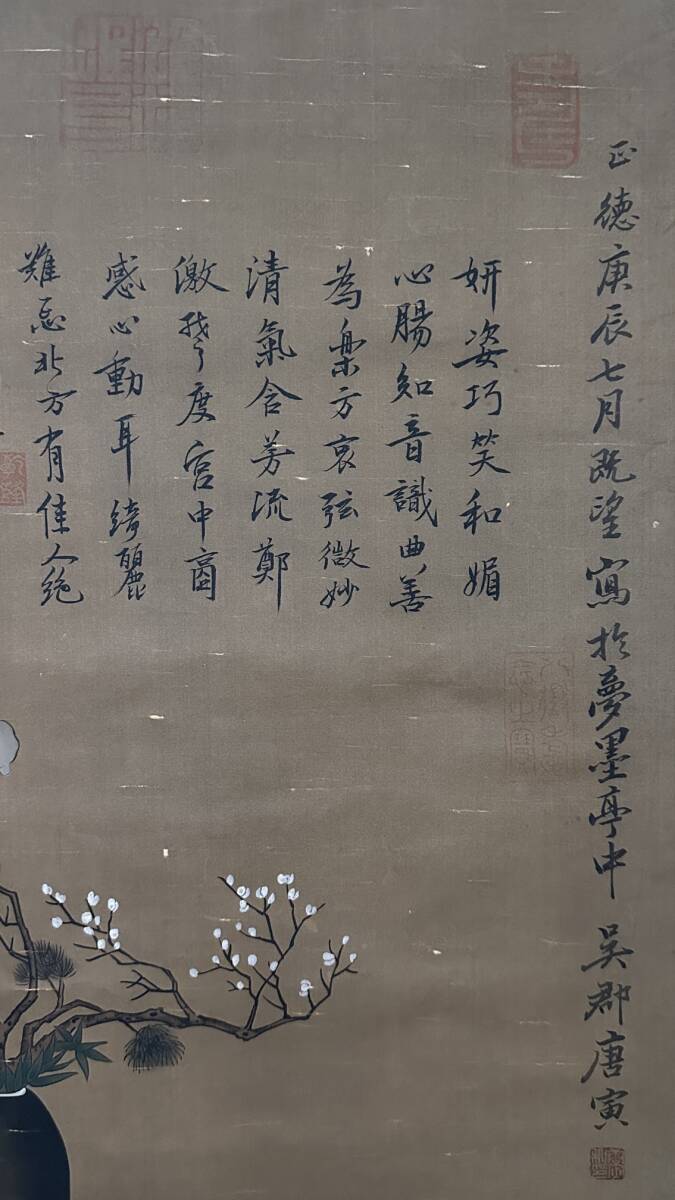 正德庚辰七月既望寫於夢墨亭中 吳郡唐寅
妍姿巧笑和媚
心腸知音識曲善
為樂方哀弦微妙
清氣含芳流鄭
激楚度宮中商
感心動耳綺麗
難忘北方有佳人絕